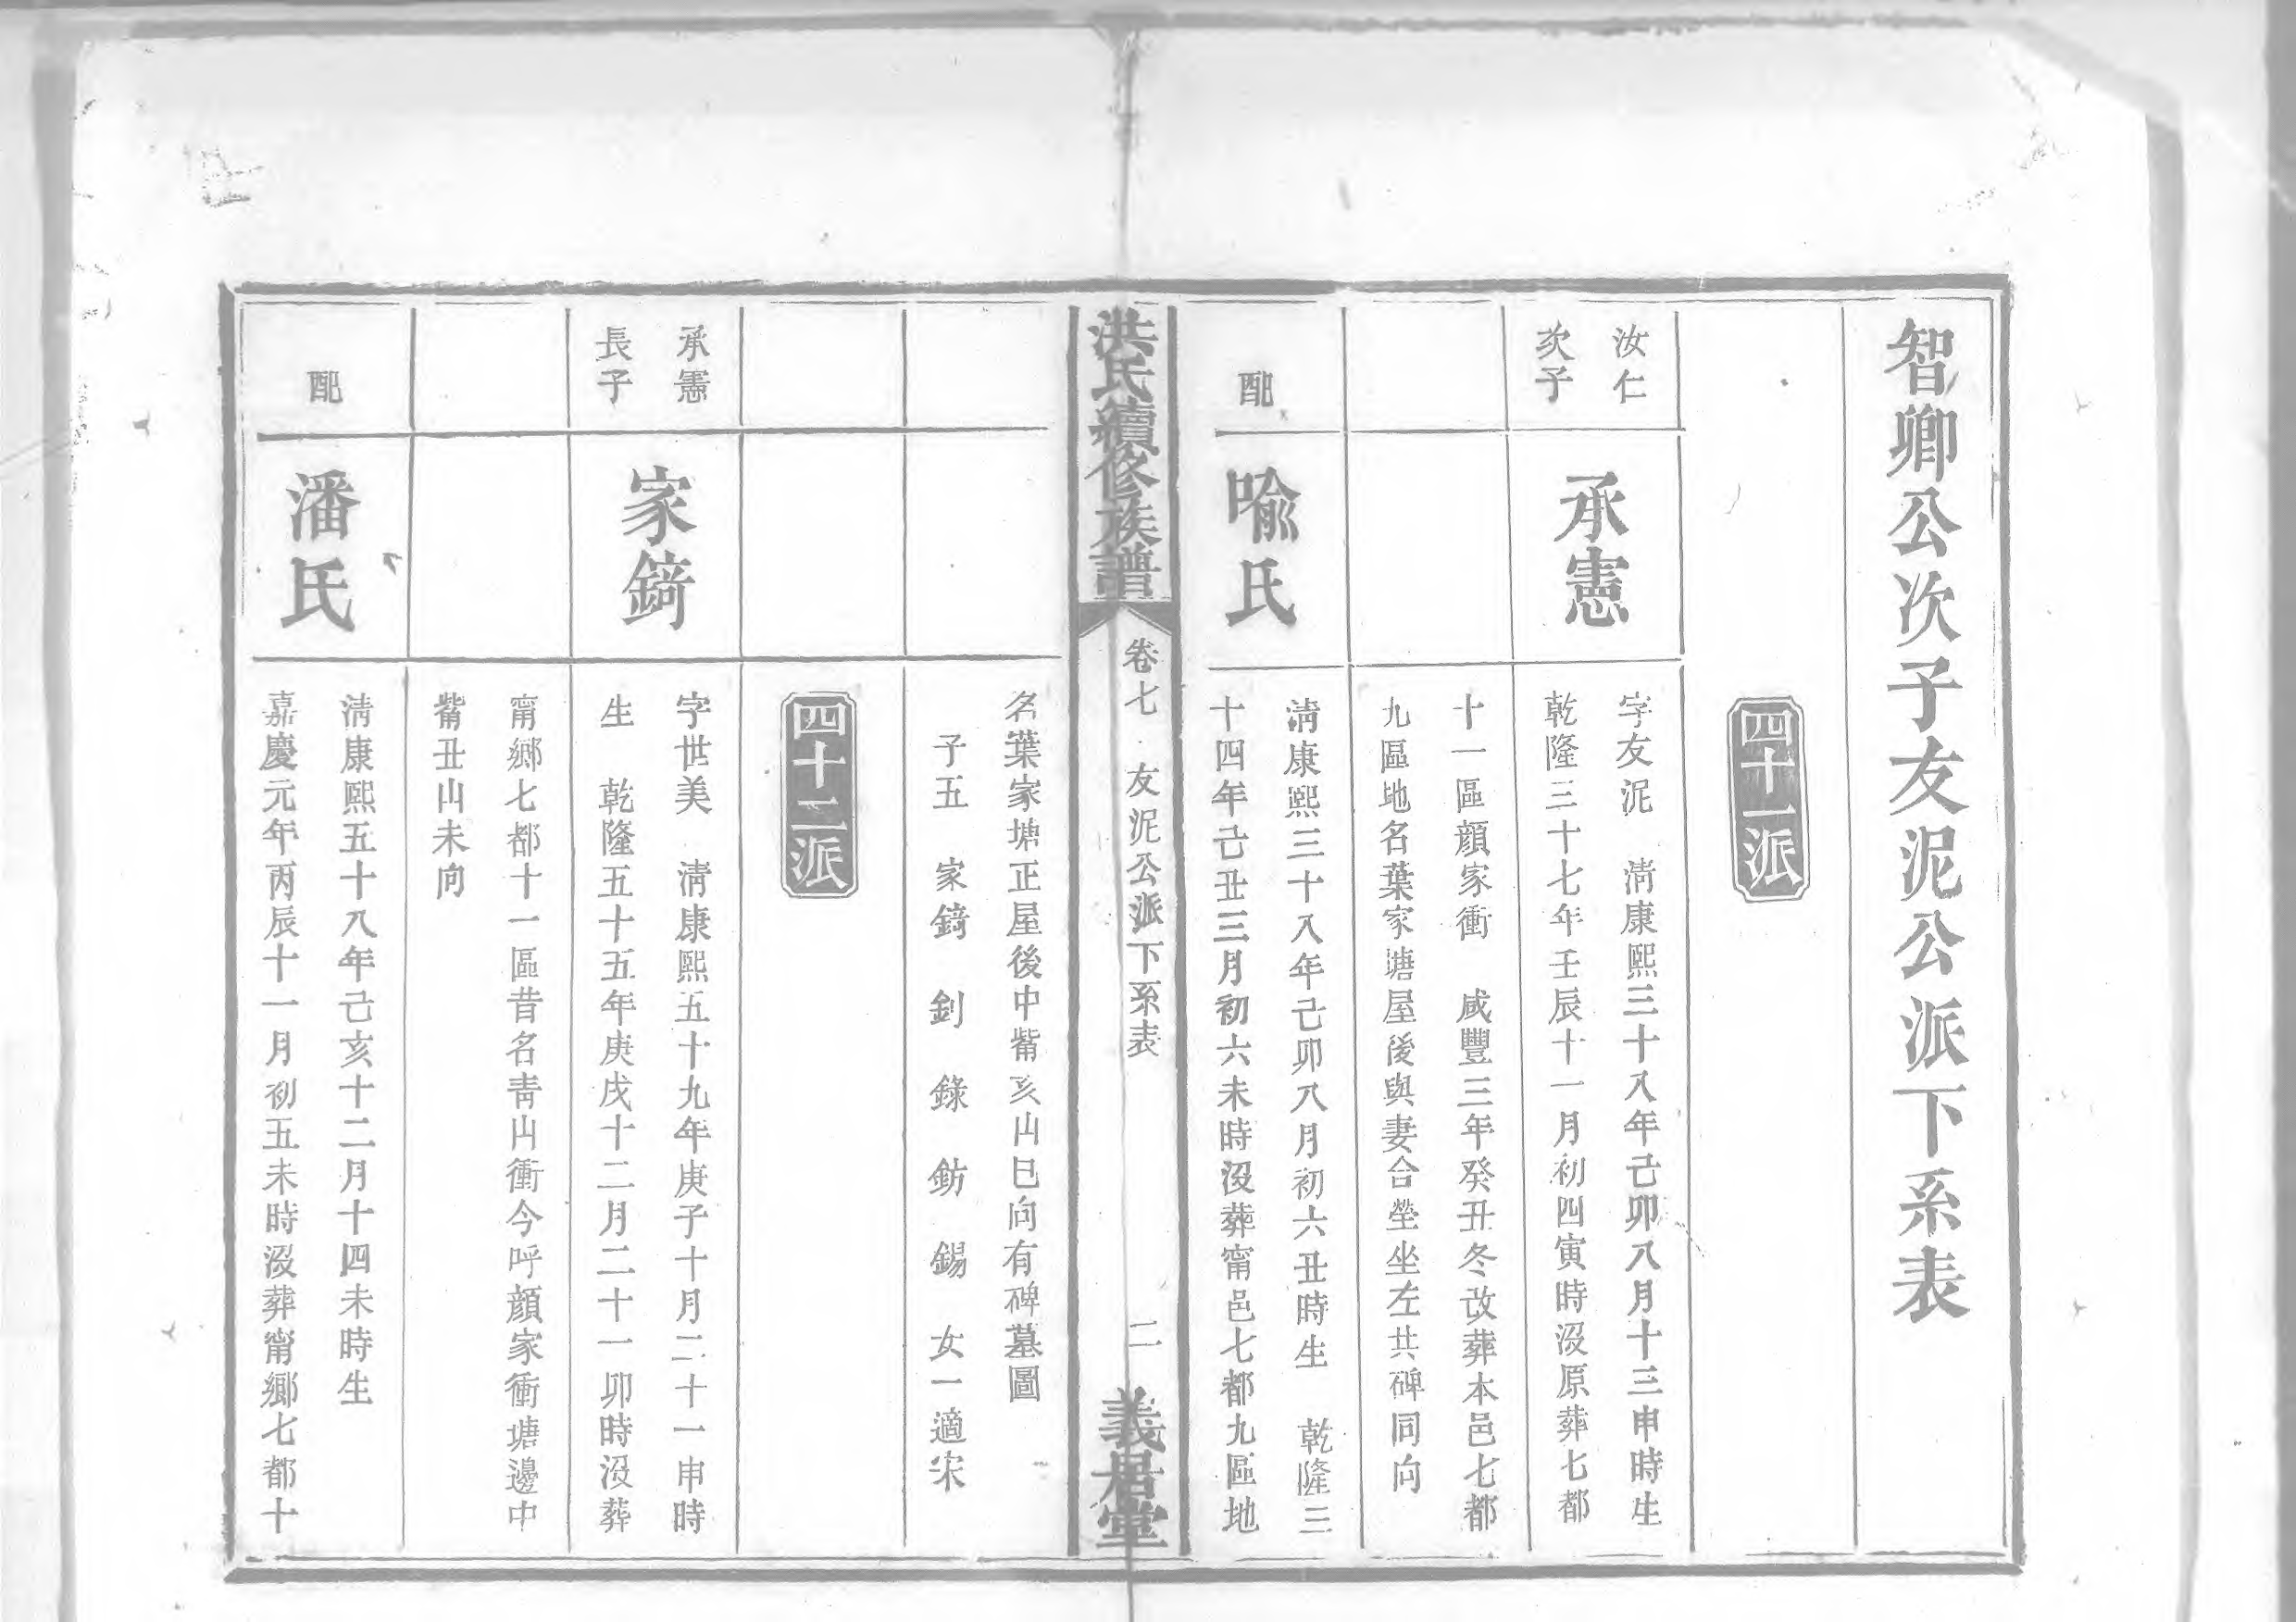 智卿公次子友泥公派下系表
四十一派
汝仁
次子
承憲
字友泥　清康熙三十八年己卯八月十三申時生
乾隆三十七年壬辰十一月初四寅時沒原葬七都
十一區顔家衝　咸豐三年癸丑冬改葬本邑七都
九區地名葉家塘屋後與妻合塋坐左共碑同向
配
喻氏
清康熙三十八年己卯八月初六丑時生　乾隆三
十四年己丑三月初六未時沒葬甯邑七都九區地
洪氏續修族譜
卷七　友泥公派下系表
二
義居堂
名葉家塘正屋後中觜亥山巳向有碑墓圖
子五　家錡　釗　錄　鈁　錫　女一適宋
四十二派
承憲
長子
家錡
字世美　清康熙五十九年庚子十月二十一申時
生　乾隆五十五年庚戌十二月二十一卯時沒葬
甯鄉七都十一區昔名青山衝今呼顔家衝塘邊中
觜丑山未向
配
潘氏
清康熙五十八年己亥十二月十四未時生
嘉慶元年丙辰十一月初五未時沒葬甯鄉七都十